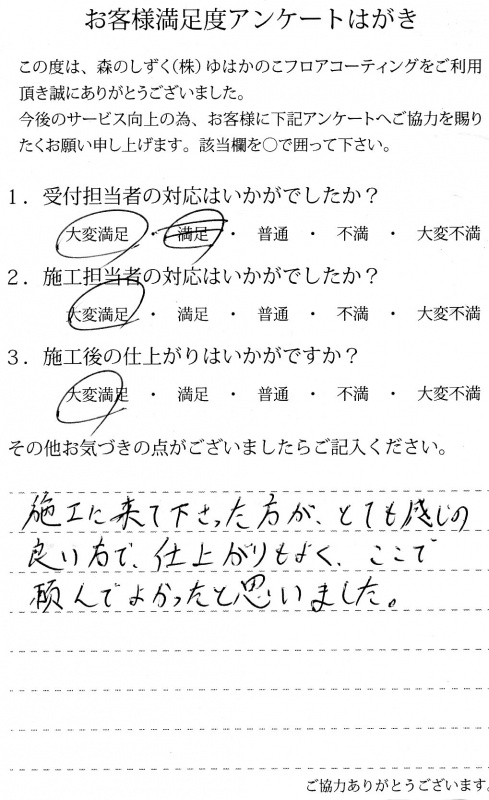 お客様満足度アンケートはがき
この度は、森のしずく(株)ゆはかのこフロアコーティングをご利用
頂き誠にありがとうございました。
今後のサービス向上の為、お客様に下記アンケートへご協力を賜り
たくお願い申し上げます。該当欄を○で囲って下さい。
1．受付担当者の対応はいかがでしたか？
大変満足 ・ 満足 ・ 普通 ・ 不満 ・ 大変不満
2．施工担当者の対応はいかがでしたか？
大変満足 ・ 満足 ・ 普通 ・ 不満 ・ 大変不満
3．施工後の仕上がりはいかがですか？
大変満足 ・ 満足 ・ 普通 ・ 不満 ・ 大変不満
その他お気づきの点がございましたらご記入ください。
施工に来て下さった方が、とても感じの
良い方で、仕上がりもよく、ここで
頼んでよかったと思いました。
ご協力ありがとうございます。